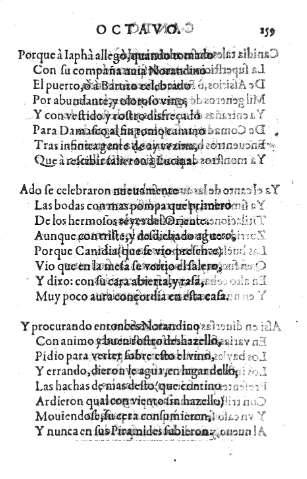 OCTAVO. 159
Porque à Iaphà allegò, quando tornado
Con su compañia auia Norandino
El puerto, ò à Baruto celebrado
Por abundante, y oloroso vino,
Y con vestido y rostro disfreçado
Para Damasco al fin tomò camino
Tras infinita gente
Que à rescibir salieron à Lucina.
Ado se celebraron nueuamente
Las bodas con mas pompa que primero
De los hermosos reyes del Oriente.
Aunque con triste, y desdichado aguero,
Porque Canidia (que se vio presente)
Vio que en la mesa se vertio el salero,
Y dixo: con su cara abierta, y rasa,
Muy poco aura concordia en esta casa.
Y procurando entonces Norandino
Con animo y buen rostro deshazello,
Pidio para verter sobre esto el vino,
Y errando, dieron le agua, en lugar dello,
Las hachas de mas desto, que contino
Ardieron qual con viento sin hazello)
Mouiendose, su cera consumieron,
Y nunca en sus Piramides subieron,